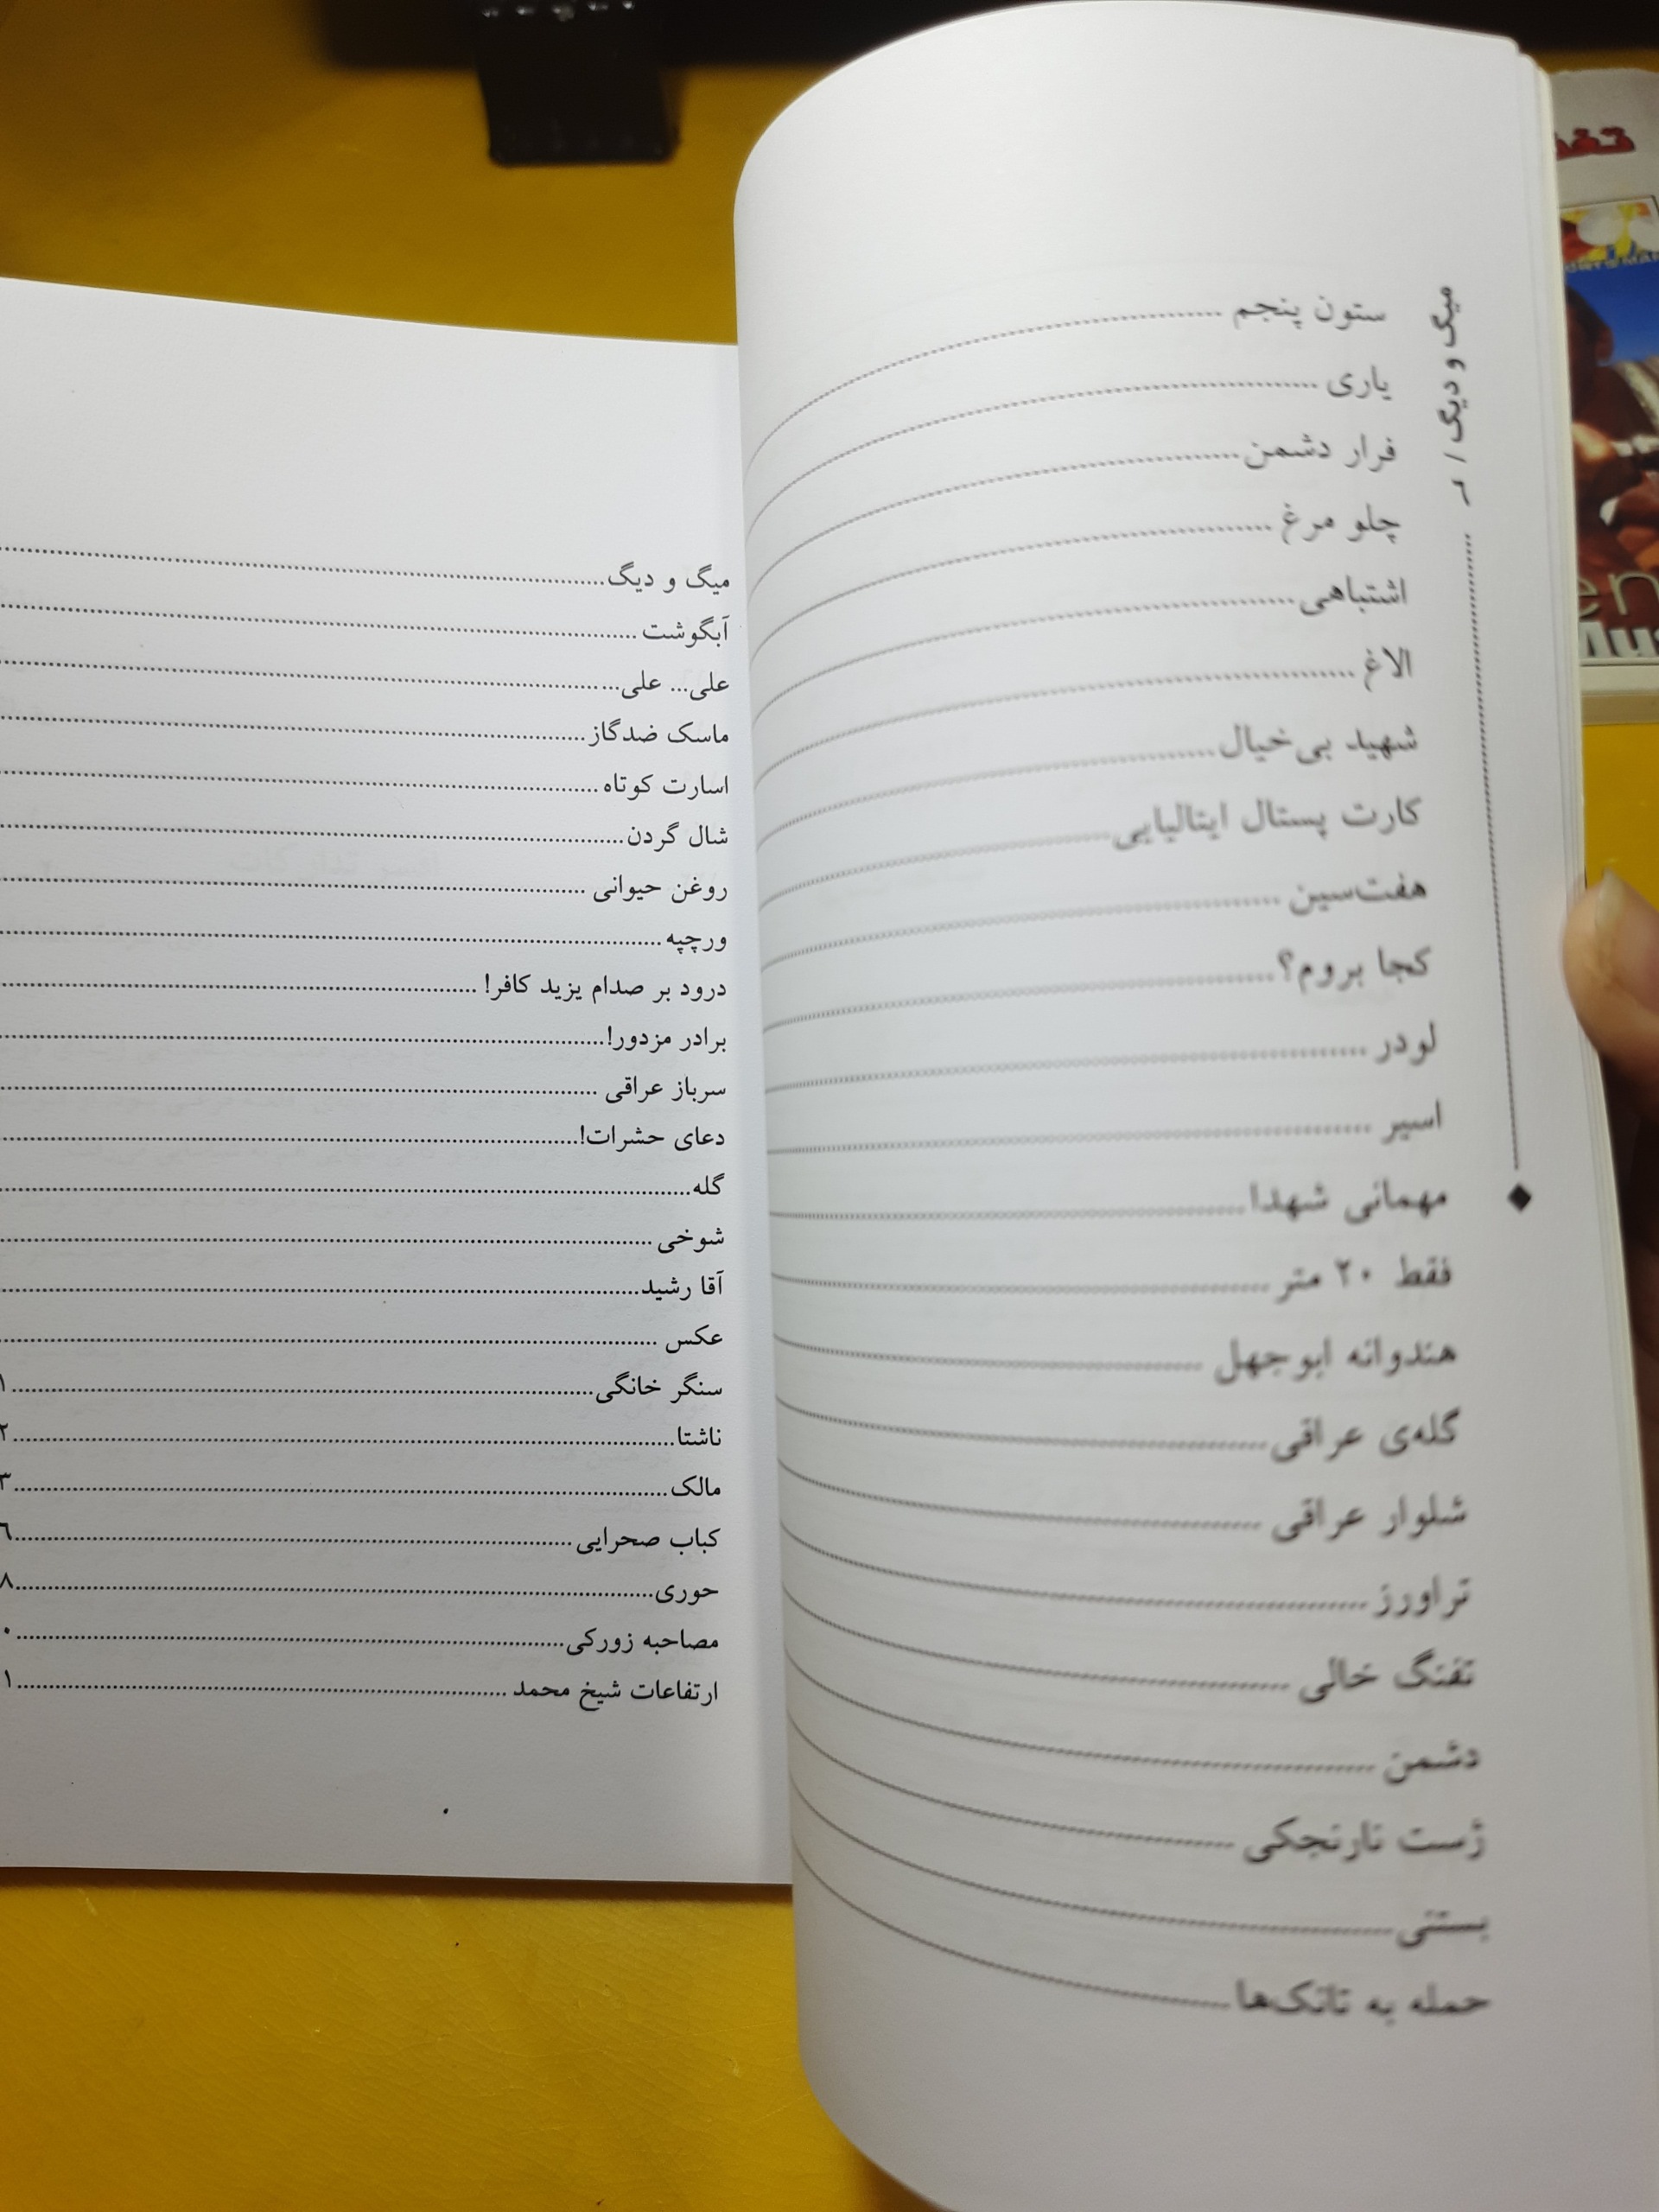 میگ و دیگ / ٦
ستون پنجم
یاری
فرار دشمن
چلو مرغ
اشتباهی
الاغ
شهید بی‌خیال
کارت پستال ایتالیایی
هفت‌سین
کجا بروم؟
لودر
اسیر
مهمانی شهدا
فقط ۲۰ متر
هندوانه ابوجهل
گله‌ی عراقی
شلوار عراقی
تراورز
تفنگ خالی
دشمن
ژست نارنجکی
بستنی
حمله به تانک‌ها
میگ و دیگ
آبگوشت
علی... علی...
ماسک ضدگاز
اسارت کوتاه
شال گردن
روغن حیوانی
ورچپه
درود بر صدام یزید کافر!
برادر مزدور!
سرباز عراقی
دعای حشرات!
گله
شوخی
آقا رشید
عکس
سنگر خانگی
ناشتا
مالک
کباب صحرایی
حوری
مصاحبه زورکی
ارتفاعات شیخ محمد